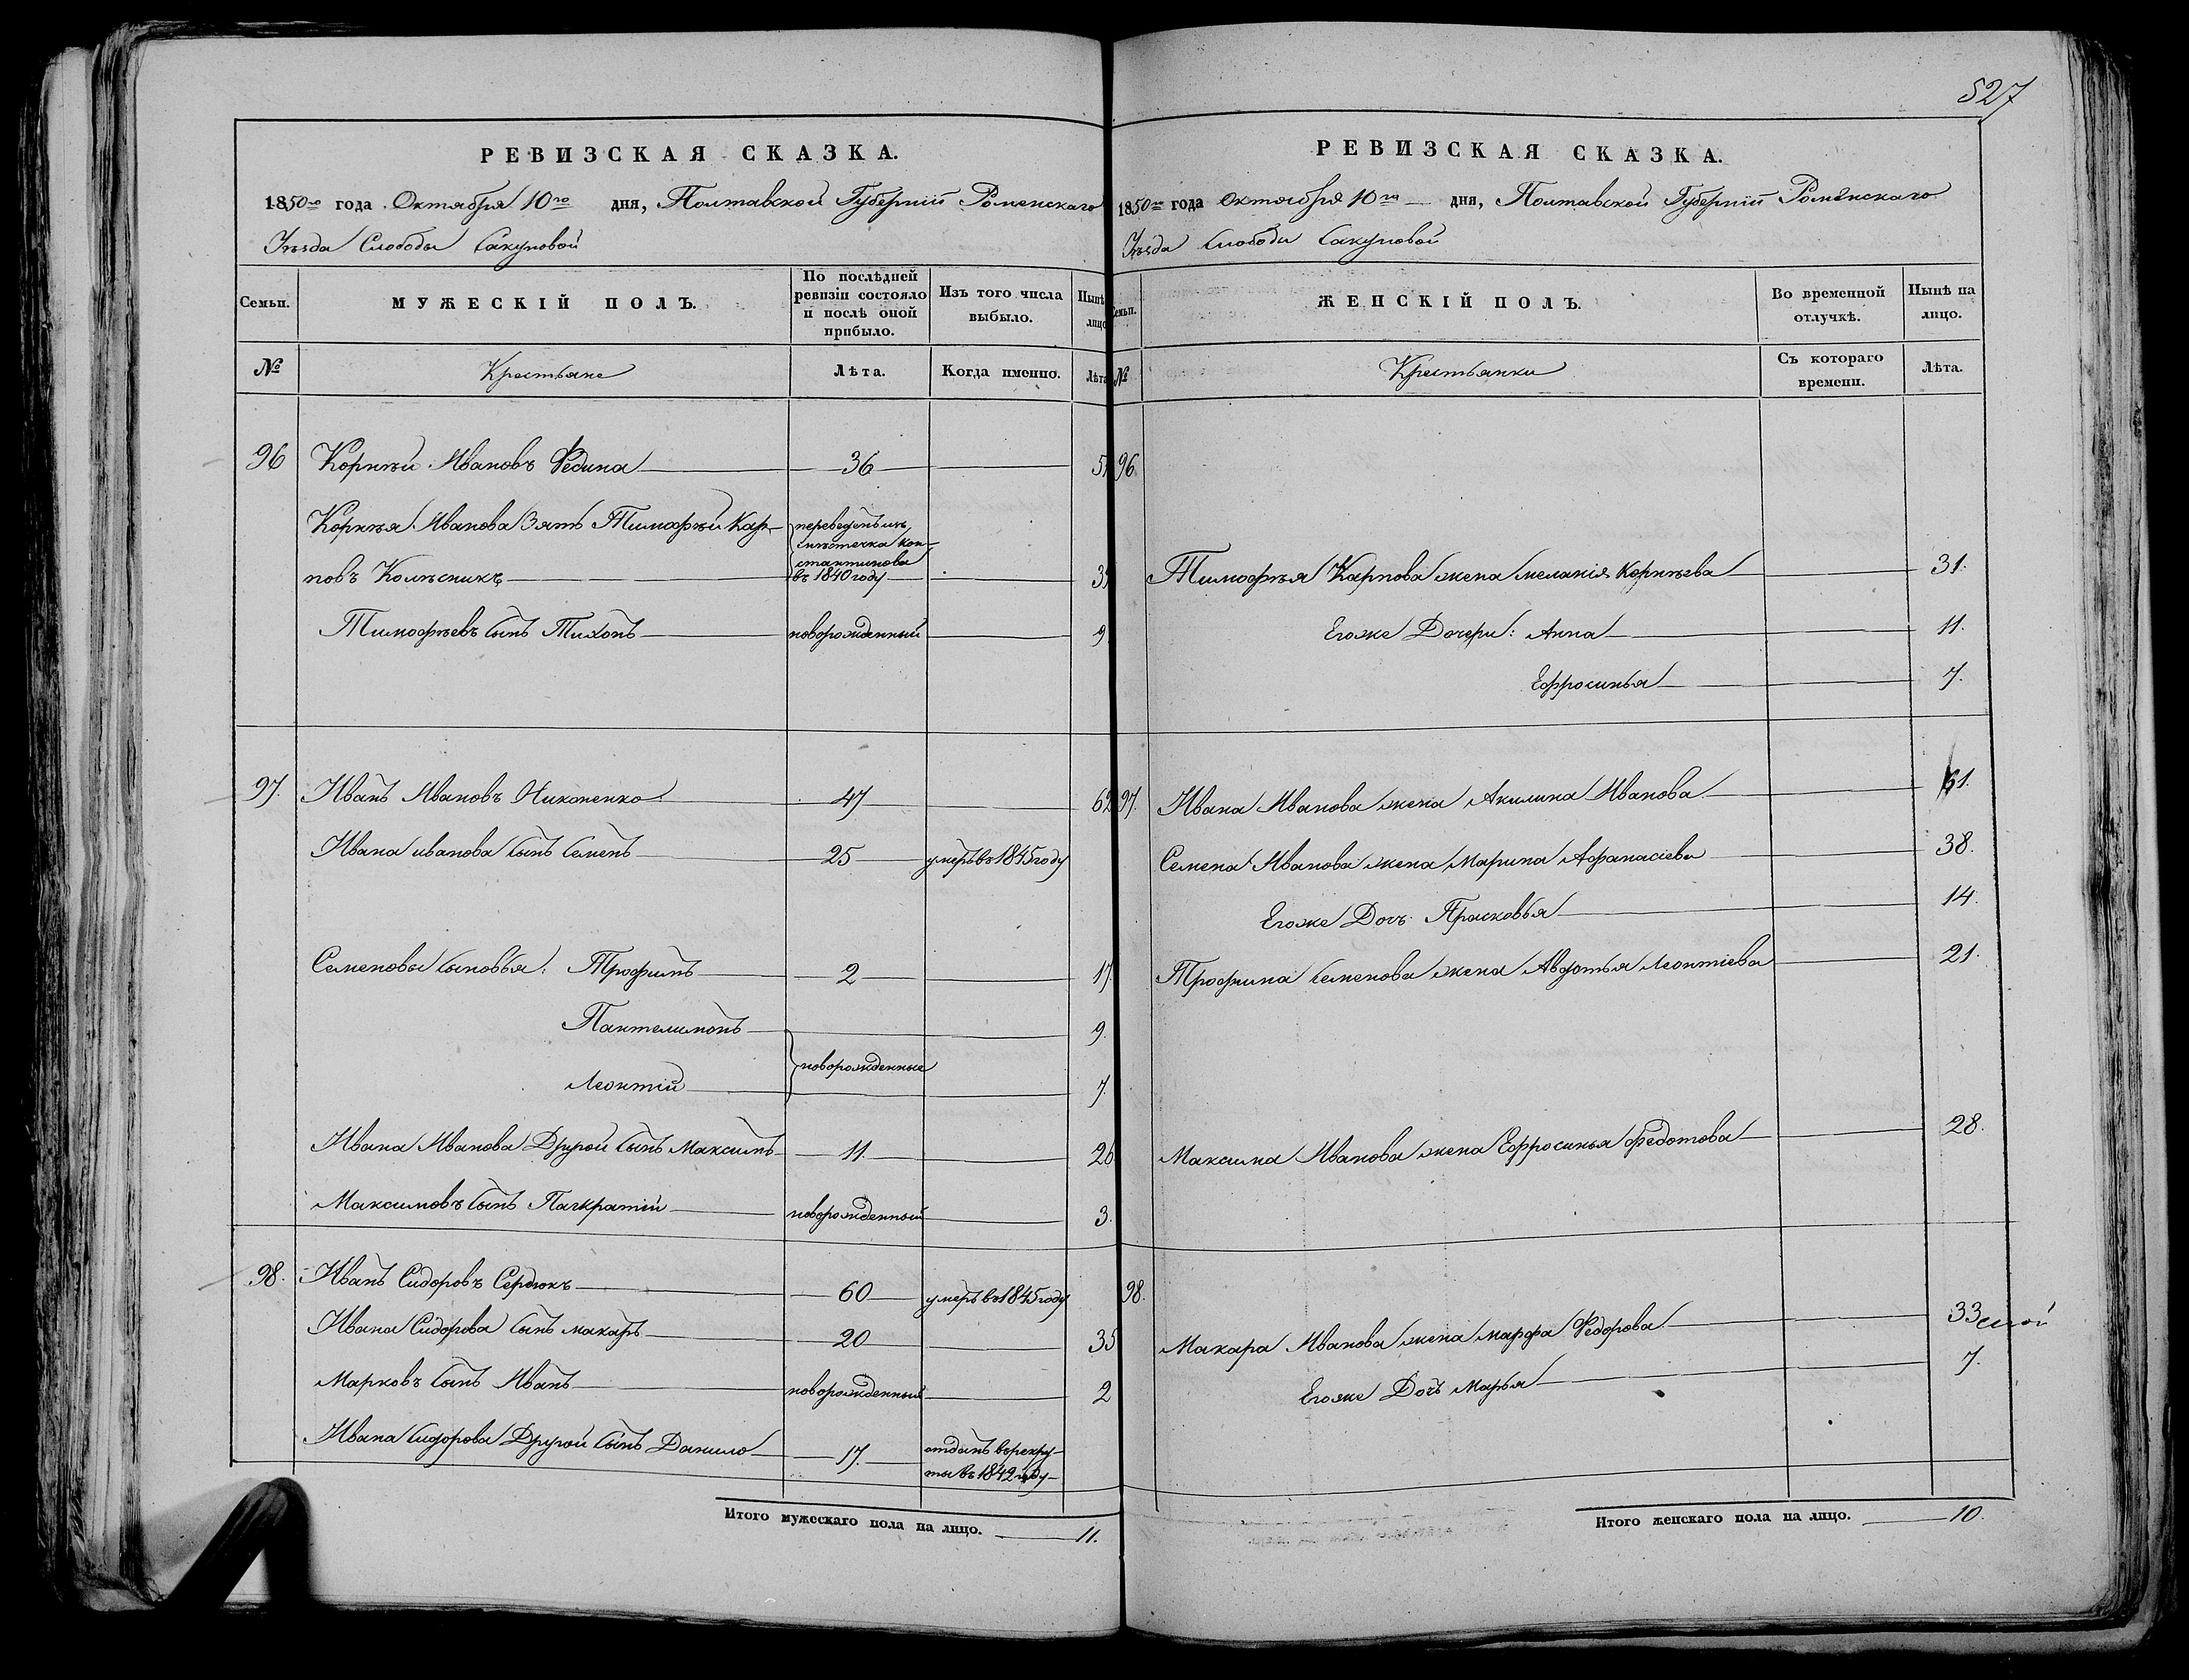 527
РЕВИЗСКАЯ СКАЗКА.
1850го года Октября 10го дня, Полтавской Губерніи Роменскаго
Уѣзда Слободы Сакуновой
Семьи. МУЖЕСКІЙ ПОЛЪ. По послѣдней ревизіи состояло и послѣ оной прибыло. Изъ того числа выбыло. Нынѣ лицо
№ Крестьяне Лѣта. Когда именно. Лѣта
96 Корнѣй Ивановъ Федина 36 51
Корнѣя Иванова Зять Тимофѣй Кар-
повъ Колѣсникъ переведенъ изъ мѣстечка Константинова въ 1840 году 35
Тимофѣевъ сынъ Тихонъ новорожденный 9
97. Иванъ Ивановъ Никоненко 47 62
Ивана иванова сынъ Семенъ 25 умеръ въ 1845 году
Семеновы сыновья: Трофимъ 2 17.
Пантелимонъ 9.
новорожденные
Леонтій 7.
Ивана Иванова Другой сынъ Максимъ 11. 26
Максимовъ сынъ Панкратій новорожденный 3.
98. Иванъ Сидоровъ Сердюкъ 60 умеръ въ 1845 году
Ивана Сидорова сынъ макаръ 20 35
Марковъ сынъ Иванъ новорожденный 2
Ивана Сидорова Другой сынъ Данило 17. отданъ въ рекру-
ты въ 1842 году
Итого мужескаго пола на лицо. 11.
РЕВИЗСКАЯ СКАЗКА.
1850го года Октября 10го дня, Полтавской Губерніи Роменскаго
Уѣзда Слободы Сакуновой
Семьи. ЖЕНСКІЙ ПОЛЪ. Во временной отлучкѣ. Нынѣ на лицо.
№ Крестьянки Съ котораго времени. Лѣта.
96.
Тимофѣя Карпова жена меланія Корнѣева 31.
Егоже Дочери: Анна 11.
Ефросинья 7.
97. Ивана Иванова жена Акилина Иванова 61.
Семена Иванова жена Марина Афанасіева 38.
Егоже Дочь Прасковья 14.
Трофима Семенова жена Авдотья Леонтіева 21.
Максима Иванова жена Ефросинья Федотова 28.
98.
Макара Иванова жена марфа Федорова 33
Егоже Дочь Марья 7.
Итого женскаго пола на лицо. 10.